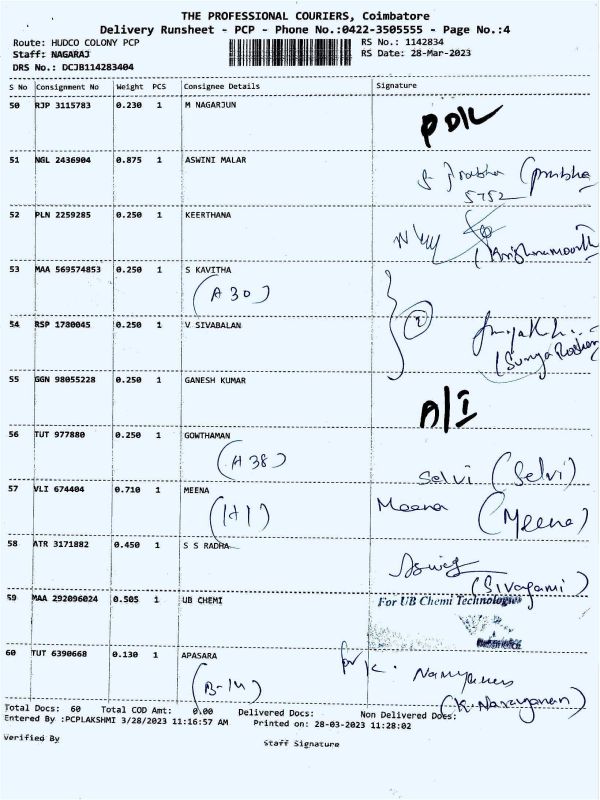 THE PROFESSIONAL COURIERS, Coimbatore
Delivery Runsheet - PCP - Phone No.:0422-3505555 - Page No.:4
Route: HUDCO COLONY PCP
RS No.: 1142834
Staff: NAGARAJ
RS Date: 28-Mar-2023
DRS No.: DCJB114283404
S No Consignment No Weight PCS Consignee Details Signature
50 RJP 3115783 0.230 1 M NAGARJUN
51 NGL 2436904 0.875 1 ASWINI MALAR
5752
52 PLN 2259285 0.250 1 KEERTHANA
53 MAA 569574853 0.250 1 S KAVITHA
(A 30)
2
54 RSP 1780045 0.250 1 V SIVABALAN
55 GGN 98055228 0.250 1 GANESH KUMAR
A/I
56 TUT 977880 0.250 1 GOWTHAMAN
(A 38)
Selvi (Selvi)
57 VLI 674404 0.710 1 MEENA
Meena (Meena)
58 ATR 3171882 0.450 1 S S RADHA
(Sivagami)
59 MAA 292096024 0.505 1 UB CHEMI
For UB Chemi Technologies
60 TUT 6390668 0.130 1 APASARA
(B-14)
(K. Narayanan)
Total Docs: 60 Total COD Amt: 0.00 Delivered Docs: Non Delivered Docs:
Entered By :PCPLAKSHMI 3/28/2023 11:16:57 AM Printed on: 28-03-2023 11:28:02
Verified By
Staff Signature